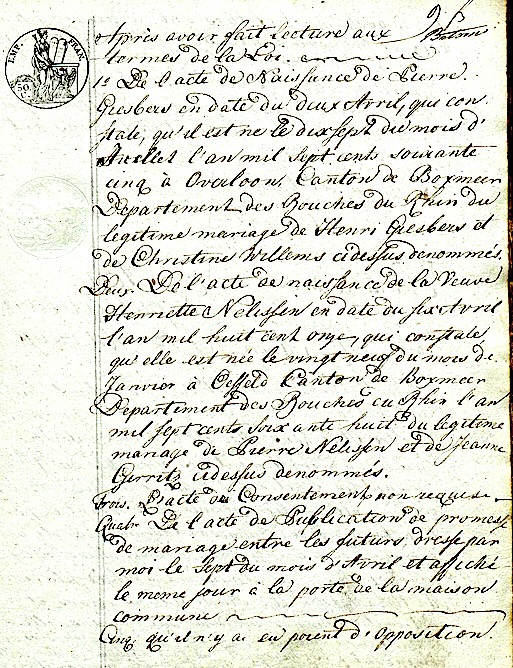 EMP. FRAN.
50
C.
Après avoir fait lecture aux
termes de la Loi.
1º De l'acte de Naissance de Pierre
Giesbers en date du deux Avril, qui con
state, qu'il est né le dix sept du mois d'
Juillet l'an mil sept cents soixante
cinq à Overloon, Canton de Boxmeer
Departement des Bouches du Rhin du
legitime mariage de Henri Giesbers et
de Christine Willems cidessus denommés.
Deux. De l'acte de naissance de la Veuve
Henriette Nelissen en date du six Avril
l'an mil huit cent onze, qui constate
qu'elle est née le vingt neuf du mois de
Janvier à Oeffeld Canton de Boxmeer
Departement des Bouches du Rhin l'an
mil sept cents soixante huit du legitime
mariage de Pierre Nelissen et de Jeanne
Gerritz cidessus denommés.
Trois. L'acte de Consentement non requise
Quatr. De l'acte de Publication de promesse
de mariage entre les futurs dressé par
moi le sept du mois d'Avril et affiché
le meme jour à la porte de la maison
commune
Cinq. qu'il n'y a eu point d'Opposition.